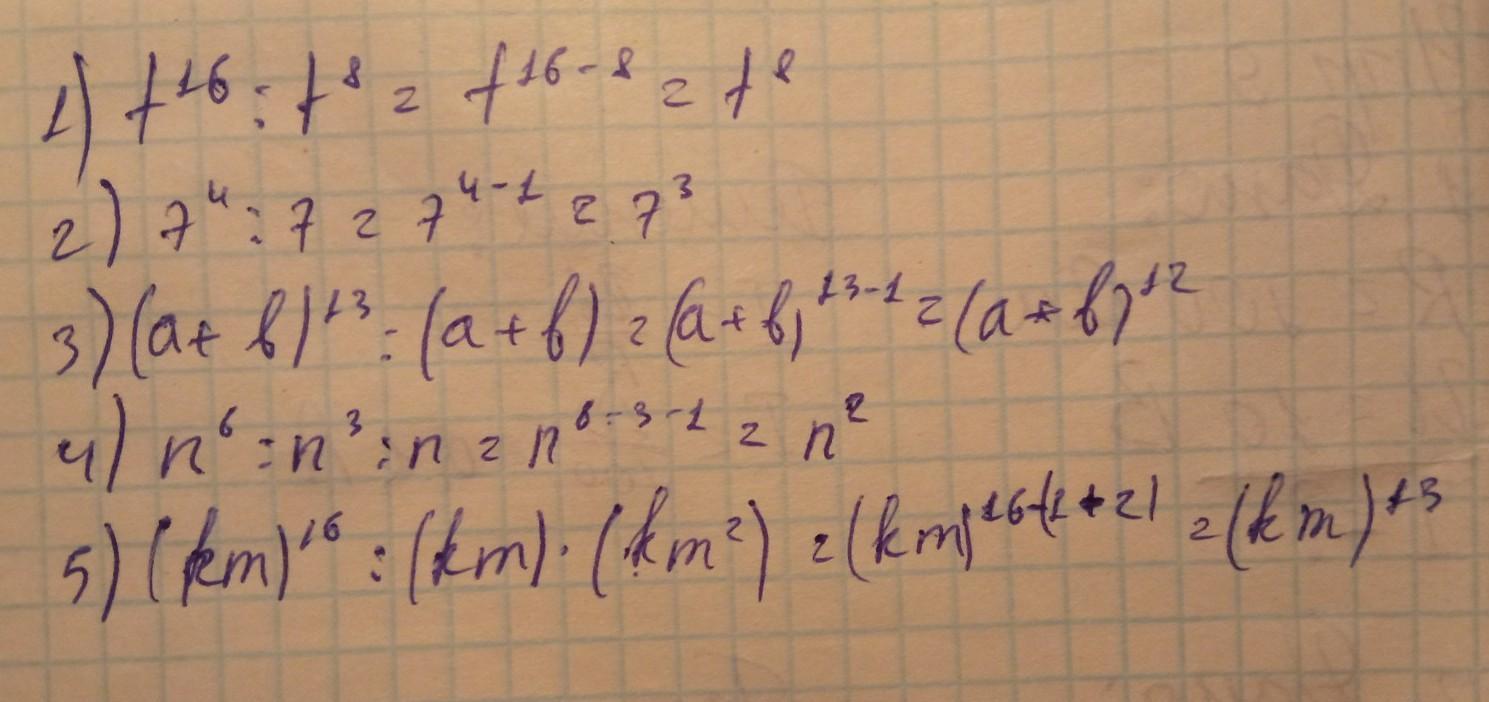 1) f¹⁶ : f⁸ = f¹⁶⁻⁸ = f⁸
2) 7⁴ : 7 = 7⁴⁻¹ = 7³
3) (a + b)¹³ : (a + b) = (a + b)¹³⁻¹ = (a + b)¹²
4) n⁶ : n³ : n = n⁶⁻³⁻¹ = n²
5) (km)¹⁶ : (km) · (km²) = (km)¹⁶⁻⁽¹⁺²⁾ = (km)¹³